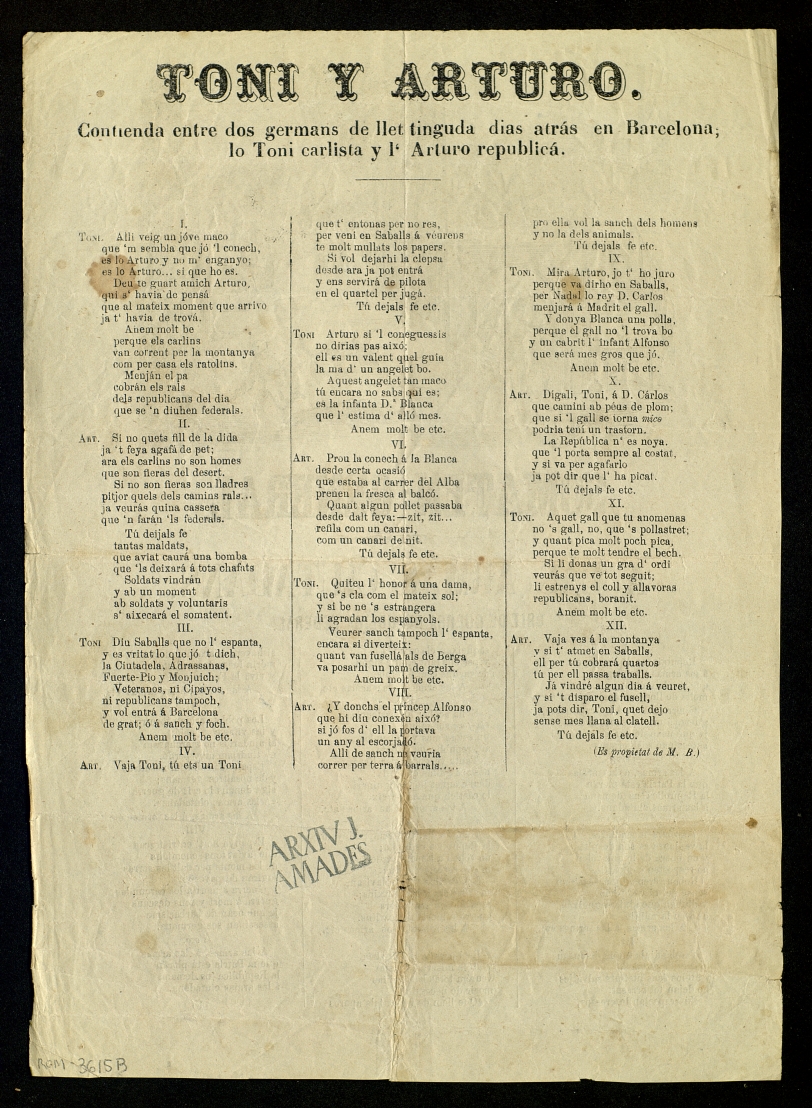 TONI Y ARTURO.
Contienda entre dos germans de llet tinguda dias atrás en Barcelona,
lo Toni carlista y l' Arturo republicá.
I.
TONI. Allí veig un jóve maco
que 'm sembla que jó 'l conech,
es lo Arturo y no m' enganyo;
es lo Arturo... si que ho es.
Deu te guart amich Arturo,
qui s' havia de pensá
que al mateix moment que arrivo
ja t' havia de trová.
Anem molt be
perque els carlins
van corrent per la montanya
com per casa els ratolins.
Menján el pa
cobrán els rals
dels republicans del dia
que se 'n diuhen federals.
II.
ART. Si no quets fill de la dida
ja 't feya agafá de pet;
ara els carlins no son homes
que son fieras del desert.
Si no son fieras son lladres
pitjor quels dels camins rals...
ja veurás quina cassera
que 'n farán 'ls federals.
Tú deijals fe
tantas maldats,
que aviat caurá una bomba
que 'ls deixará á tots chafats
Soldats vindrán
y ab un moment
ab soldats y voluntaris
s' aixecará el somatent.
III.
TONI Diu Saballs que no l' espanta,
y es vritat lo que jó t dich,
la Ciutadela, Adrassanas,
Fuerte-Pio y Monjuich;
Veteranos, ni Cipayos,
ni republicans tampoch,
y vol entrá á Barcelona
de grat; ó á sanch y foch.
Anem molt be etc.
IV.
ART. Vaja Toni, tú ets un Toni
que t' entonas per no res,
per veni en Saballs á véurens
te molt mullats los papers.
Si vol dejarhi la clepsa
desde ara ja pot entrá
y ens servirá de pilota
en el quartel per jugá.
Tú dejals fe etc.
V.
TONI Arturo si 'l coneguessis
no dirias pas aixó;
ell es un valent quel guia
la ma d' un angelet bo.
Aquest angelet tan maco
tú encara no sabs qui es;
es la infanta D.ª Blanca
que l' estima d' alló mes.
Anem molt be etc.
VI.
ART. Prou la conech á la Blanca
desde certa ocasió
que estaba al carrer del Alba
prenen la fresca al balcó.
Quant algun pollet passaba
desde dalt feya:—zit, zit...
refila com un canari,
com un canari de nit.
Tú dejals fe etc.
VII.
TONI. Quiteu l' honor á una dama,
que 's cla com el mateix sol;
y si be ne 's estrangera
li agradan los espanyols.
Veurer sanch tampoch l' espanta,
encara si diverteix:
quant van fusellá als de Berga
va posarhi un pam de greix.
Anem molt be etc.
VIII.
ART. ¿Y donchs el príncep Alfonso
que hi diu conexén aixó?
si jó fos d' ell la portava
un any al escorjadó.
Allí de sanch ne veuria
correr per terra á barrals.....
pro ella vol la sanch dels homens
y no la dels animals.
Tú dejals fe etc.
IX.
TONI. Mira Arturo, jo t' ho juro
perque va dirho en Saballs,
per Nadal lo rey D. Carlos
menjará á Madrit el gall.
Y donya Blanca una polla,
perque el gall no 'l trova bo
y un cabrit l' infant Alfonso
que será mes gros que jó.
Anem molt be etc.
X.
ART. Digali, Toni, á D. Cárlos
que camini ab péus de plom;
que si 'l gall se torna mico
podria tení un trastorn.
La República n' es noya,
que 'l porta sempre al costat,
y si va per agafarlo
ja pot dir que l' ha picat.
Tú dejals fe etc.
XI.
TONI. Aquet gall que tu anomenas
no 's gall, no, que 's pollastret;
y quant pica molt poch pica,
perque te molt tendre el bech.
Si li donas un gra d' ordi
veurás que ve tot seguit;
li estrenys el coll y allavoras
republicans, boranit.
Anem molt be etc.
XII.
ART. Vaja ves á la montanya
y si t' atmet en Saballs,
ell per tú cobrará quartos
tú per ell passa traballs.
Já vindré algun dia á veuret,
y si 't disparo el fusell,
ja pots dir, Toni, quet dejo
sense mes llana al clatell.
Tú dejáls fe etc.
(Es propietat de M. B.)
ARXIV J.
AMADES
ROM-3615B